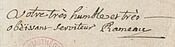 Votre très humble et très
obeissant serviteur Rameau